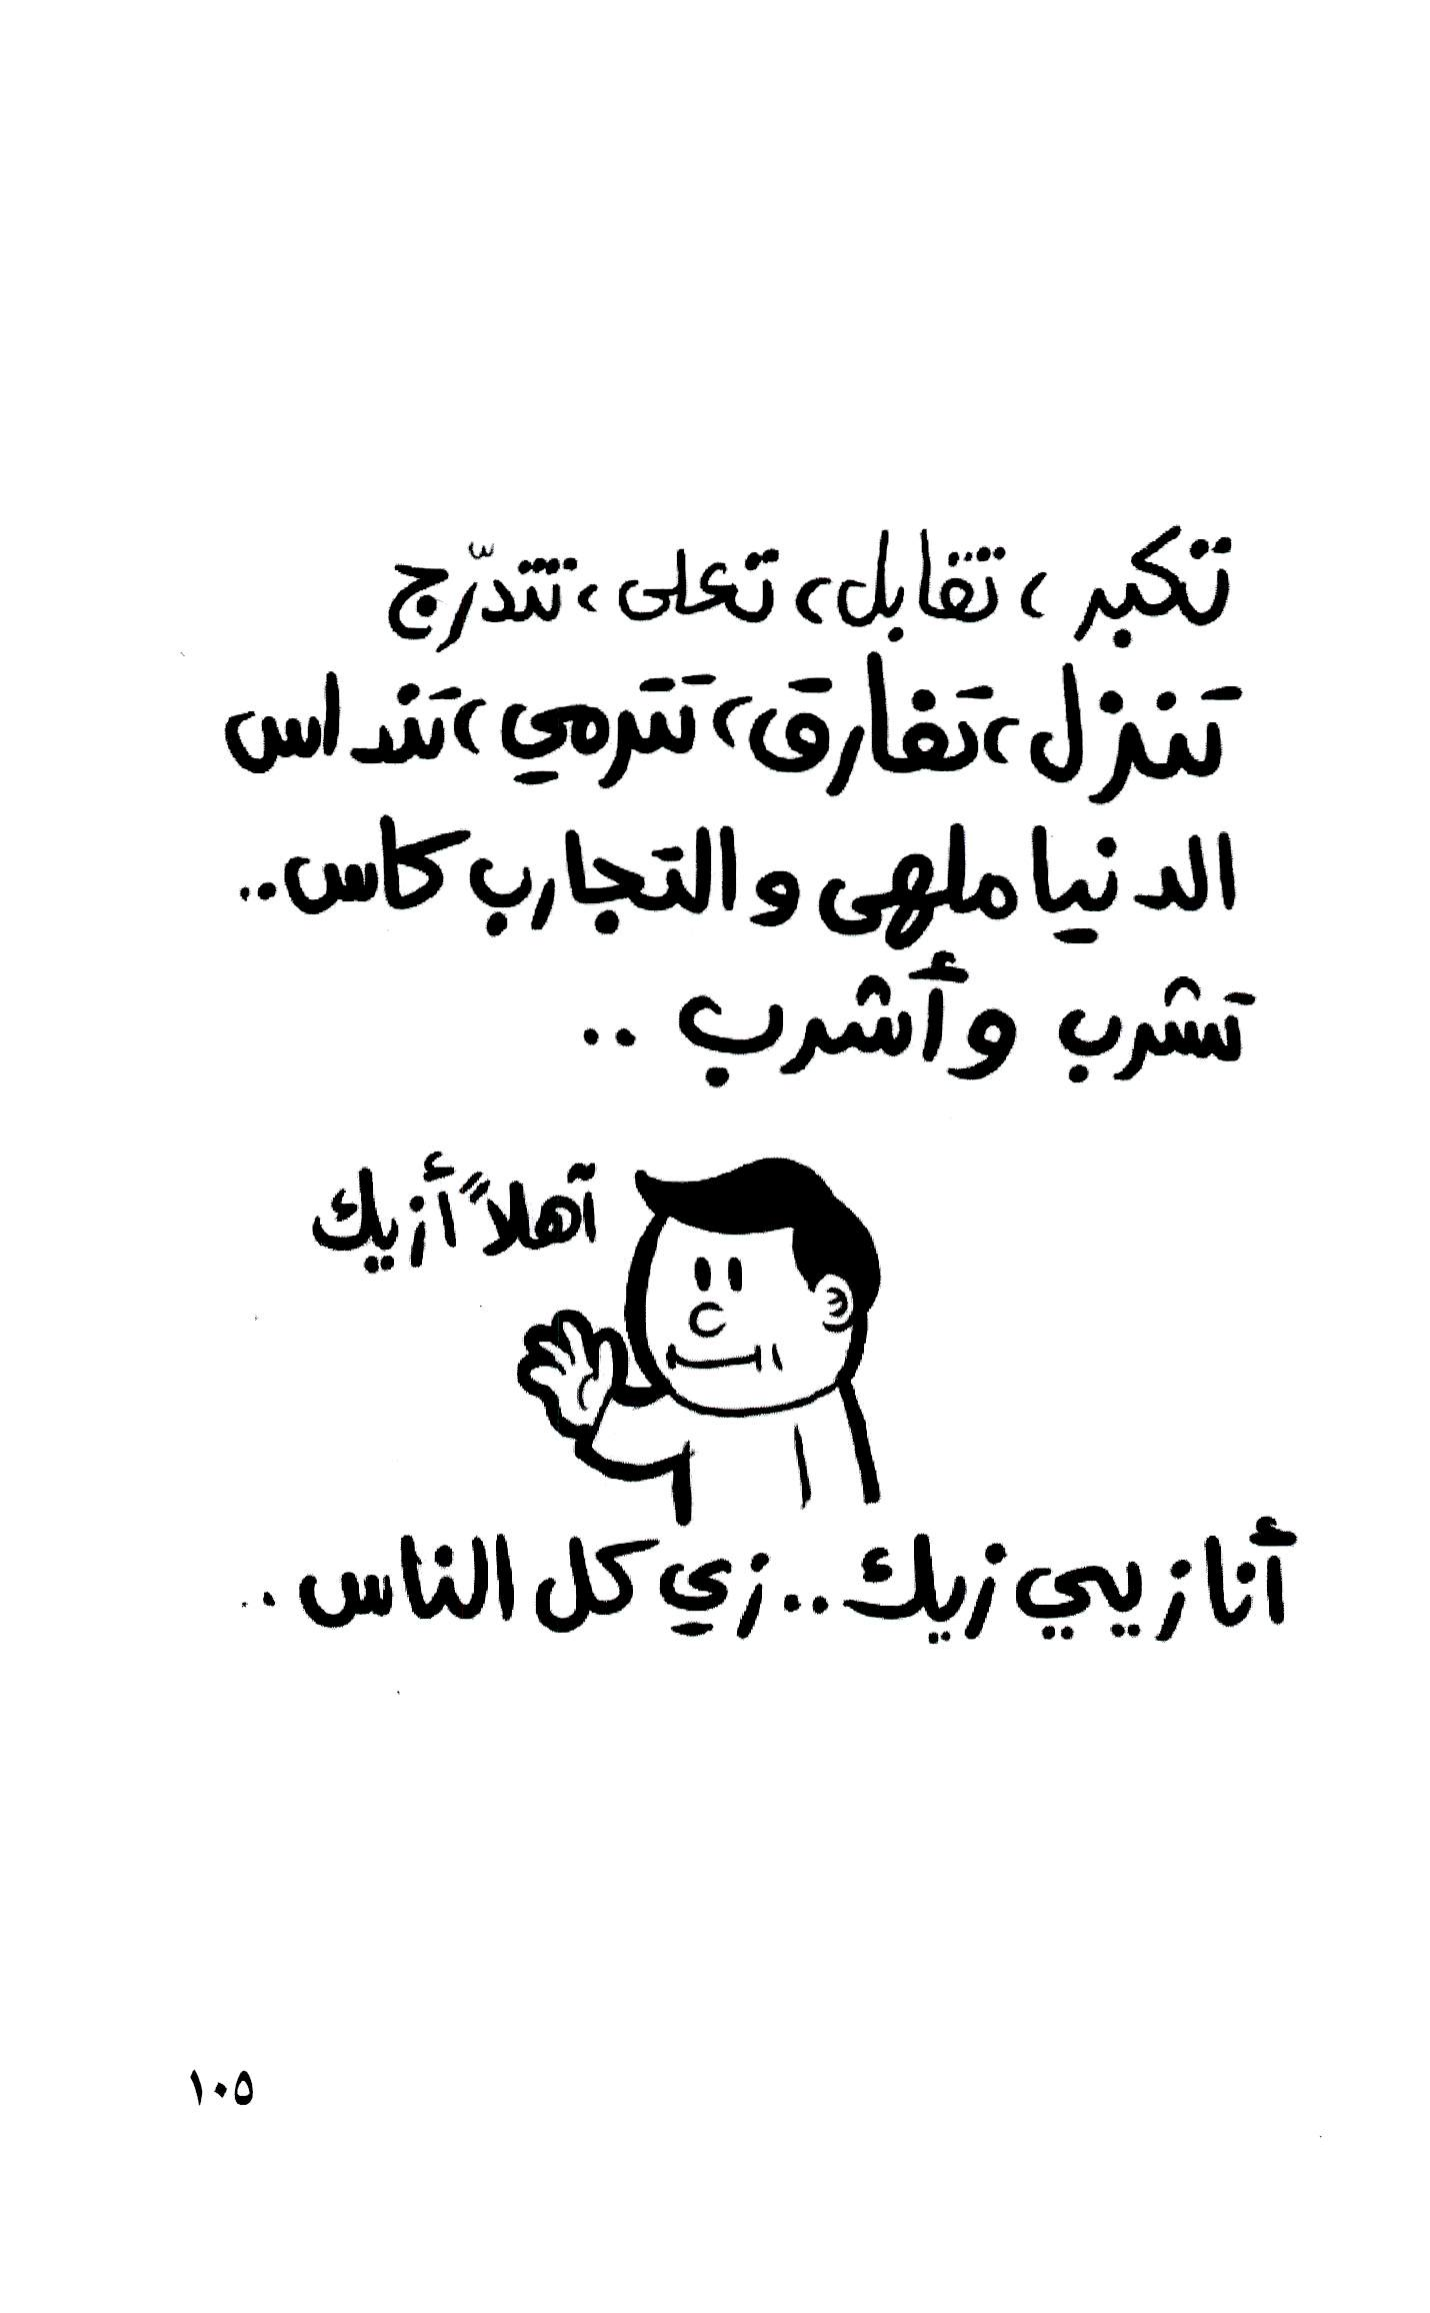 تكبر، تقابل، تعلى، تتدرّج
تنزل، تفارق، تترمي، تنداس
الدنيا ملهى والتجارب كاس..
تشرب وأشرب ..
آهلاً أزيك
أنا زيي زيك.. زي كل الناس..
١٠٥